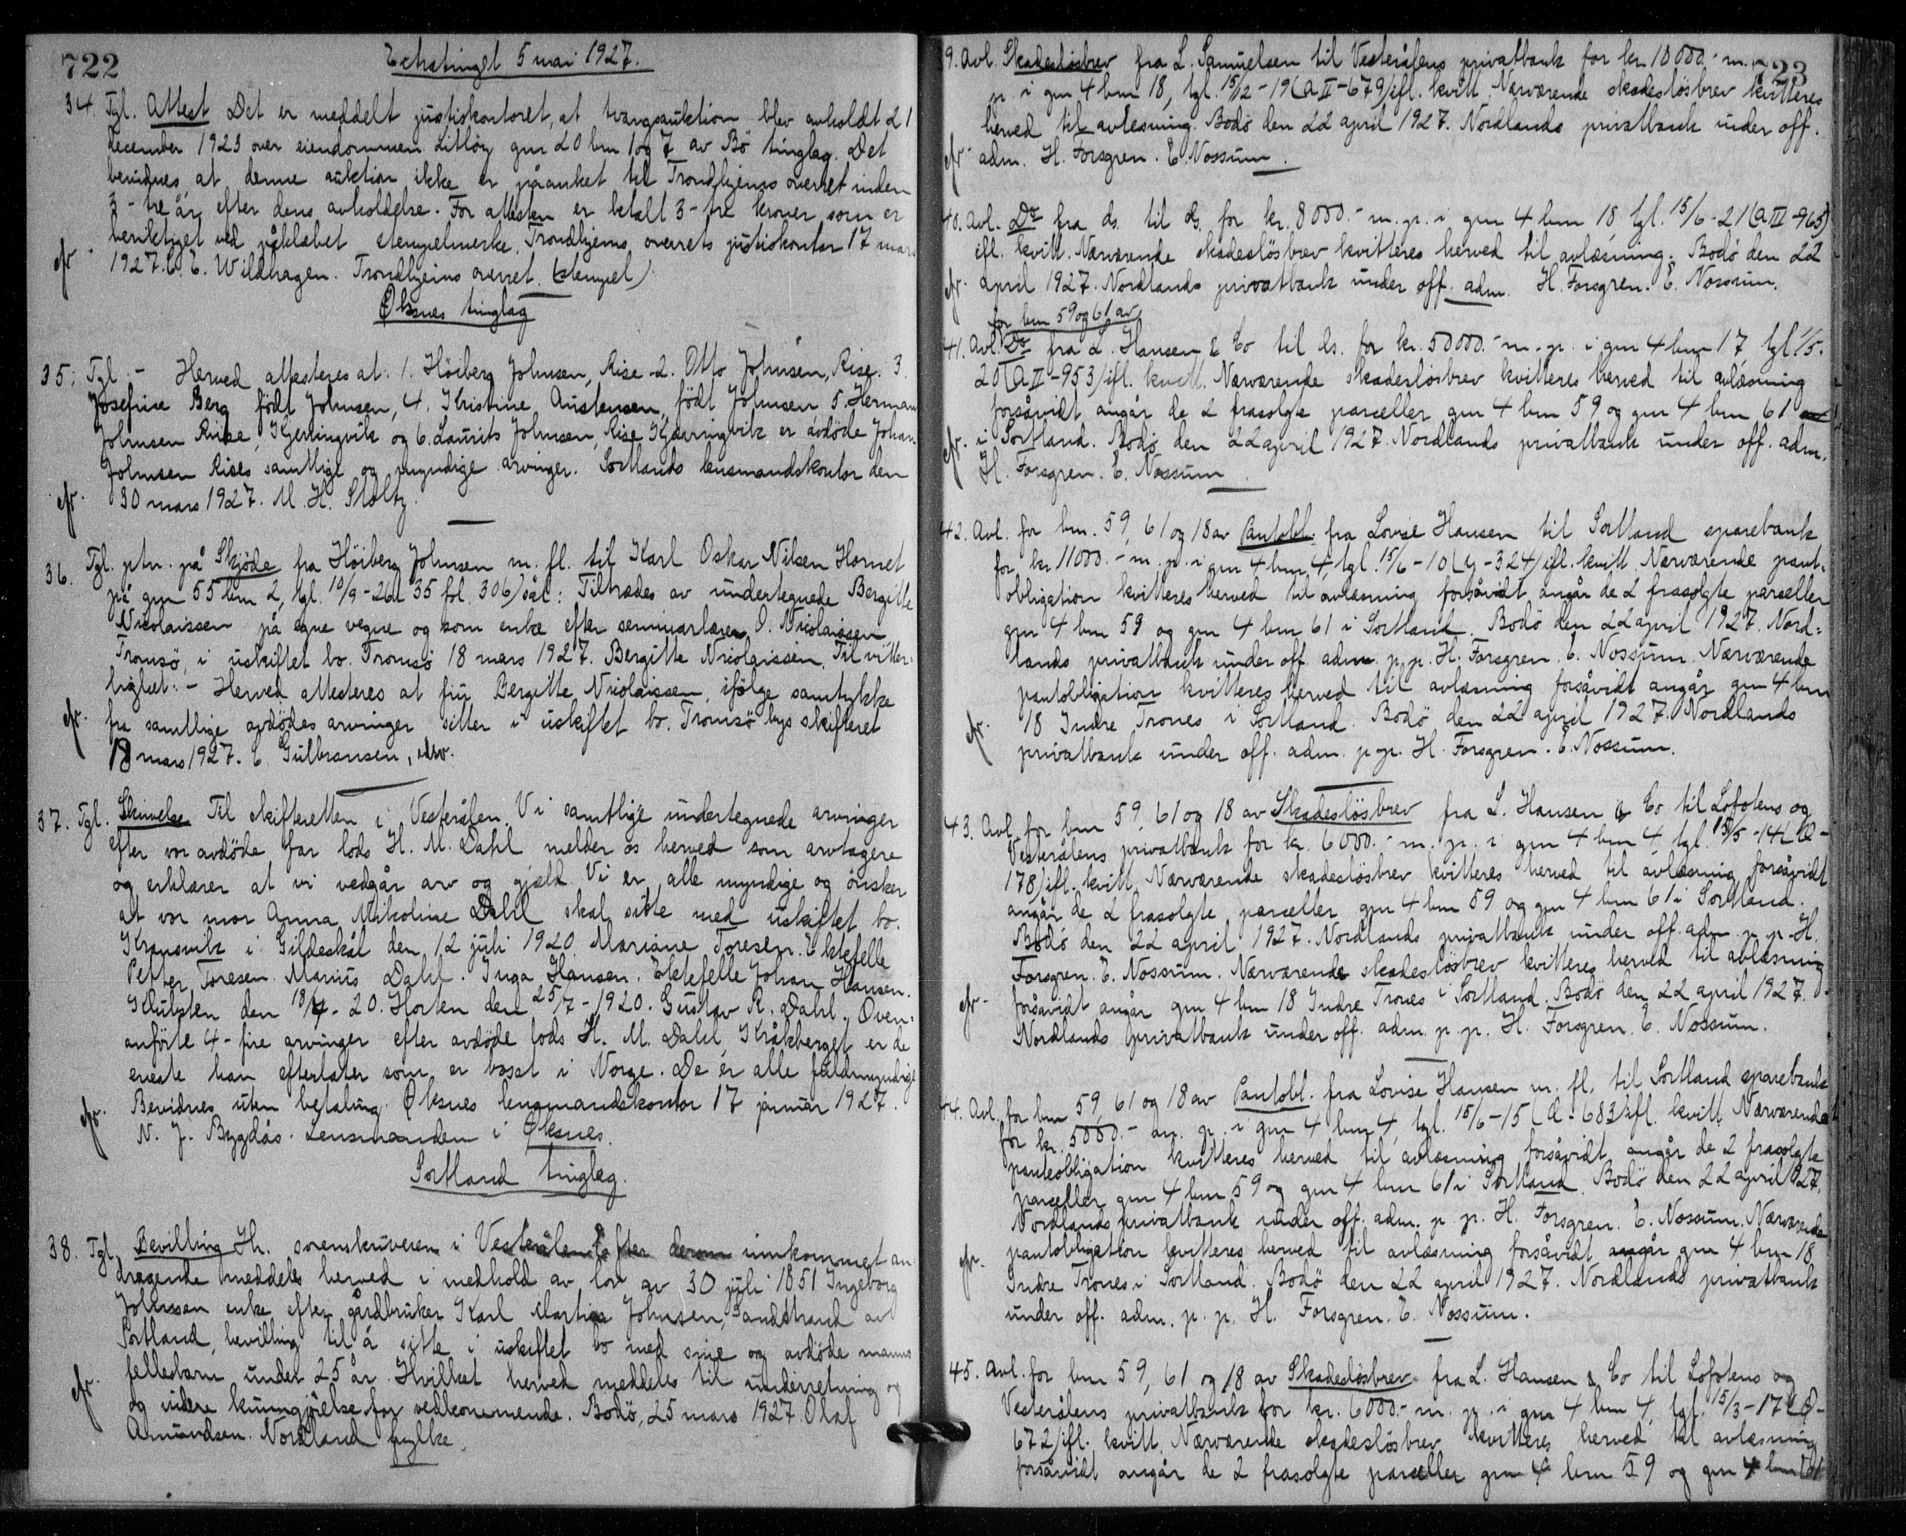 722
Ekstratinget 5 mai 1927.
34. Tgl. Attest Det er meddelt justiskontoret, at tvangsauktion blev avholdt 21
december 1923 over eiendommen Litløy gnr 20 bnr 1 og 7 av Bø tinglag. Det
bevidnes, at denne auktion ikke er påanket til Trondhjems overret inden
3 - tre år efter dens avholdelse. For attesten er betalt 3 - tre kroner som er
beriktiget ved påklæbet stempelmerke. Trondhjems overrets justiskontor 17 mars
1927. E. Wildhagen. Trondhjems overret. (stempel)
Øksnes tinglag
35. Tgl. - Herved attesteres at: 1. Høiberg Johnsen, Rise 2. Otto Johnsen, Rise. 3.
Josefine Berg født Johnsen, 4. Kristine Austensen, født Johnsen 5. Herman
Johnsen Rise, Kjerringvik og 6. Laurits Johnsen, Rise Kjerringvik er avdøde Johan
Johnsen Rises samtlige og myndige arvinger. Sortlands lensmandskontor den
30 mars 1927. M. H. Stoltz.
36. Tgl. ptn. på Skjøde fra Høiberg Johnsen m. fl. til Karl Oskar Nilsen Hornet
på gnr 55 bnr 2, tgl. 10/9-26 35 fol. 306) sål: Tiltrædes av undertegnede Bergitte
Nicolaissen på egne vegne og som enke efter seminarlærer O. Nicolaissen
Tromsø, i uskiftet bo. Tromsø 18 mars 1927. Bergitte Nicolaissen. Til vitter-
lighet: - Herved attesteres at fru Bergitte Nicolaissen, ifølge samtykke
fra samtlige avdødes arvinger sitter i uskiftet bo. Tromsø bys skifteret
18 mars 1927. E. Gulbransen,
37. Tgl. Skrivelse Til skifteretten i Vesterålen. Vi samtlige undertegnede arvinger
efter vor avdøde far lods H. M. Dahl melder os herved som arvtagere
og erklærer at vi vedgår arv og gjæld. Vi er alle myndige og ønsker
at vor mor Anna Nikoline Dahl skal sitte med uskiftet bo.
i Gildeskål den 12 juli 1920. Mariane Toresen. Ektefelle
Petter Toresen. Marius Dahl. Inga Hansen. Ektefelle Johan Hansen.
den 18/7-20. Horten den 25/7-1920. Gustav R. Dahl. Oven-
anførte 4 - fire arvinger efter avdøde lods H. M. Dahl, Kråkberget er de
eneste han efterlater som er bosat i Norge. De er alle fuldmyndige
Bevidnes uten betaling. Øksnes lensmandskontor 17 januar 1927.
N. J. Bygdås. Lensmanden i Øksnes.
Sortland tinglag.
38. Tgl. Bevilling Hr. sorenskriveren i Vesterålen. Efter derom innkommet an-
dragende meddeles herved i medhold av lov av 30 juli 1851 Ingeborg
Johnsen enke efter gårdbruker Karl Martin Johnsen, Sandstrand av
Sortland, bevilling til å sitte i uskiftet bo med sine og avdøde manns
fellesbarn under 25 år. Hvilket herved meddeles til underretning og
og videre kunngjørelse for vedkommende. Bodø, 25 mars 1927. Olaf
Amundsen. Nordland fylke.
723
9. Avl. Skadesløsbrev fra L. Samuelsen til Vesterålens privatbank for kr. 10000.- m.
p. i gnr 4 bnr 18, tgl. 15/2-19 (A II-679) ifl. kvitt. Nærværende skadesløsbrev kvitteres
herved til avlesning. Bodø den 22 april 1927. Nordlands privatbank under off.
adm. H. Forsgren. E. Nossum.
40. Avl. Do fra ds. til ds. for kr. 8000.- m. p. i gnr 4 bnr 18, tgl. 15/6-21 (A III-965)
ifl. kvitt. Nærværende skadesløsbrev kvitteres herved til avlæsning. Bodø den 22
april 1927. Nordlands privatbank under off. adm. H. Forsgren. E. Nossum.
for bnr 59 og 61 av
41. Avl. Do fra L. Hansen & Co til ds. for kr. 50000.- m. p. i gnr 4 bnr 17 tgl. 1/5-
20 (A II-953) ifl. kvitt. Nærværende skadesløsbrev kvitteres herved til avlæsning
forsåvidt angår de 2 frasolgte parceller gnr 4 bnr 59 og gnr 4 bnr 61
i Sortland. Bodø den 22 april 1927. Nordlands privatbank under off. adm.
H. Forsgren. E. Nossum
42. Avl. for bnr. 59, 61 og 18 av Pantobl. fra Lovise Hansen til Sortland sparebank
for kr. 11000.- m. p. i gnr 4 bnr 4, tgl. 15/6-10 (Y-324) ifl. kvitt. Nærværende pant-
obligation kvitteres herved til avlæsning forsåvidt angår de 2 frasolgte parceller
gnr 4 bnr 59 og gnr 4 bnr 61 i Sortland. Bodø den 22 april 1927. Nord-
lands privatbank under off. adm. p. p. H. Forsgren. E. Nossum. Nærværende
pantobligation kvitteres herved til avlæsning forsåvidt angår gnr 4 bnr
18 Indre Frones i Sortland. Bodø den 22 april 1927. Nordlands
privatbank under off. adm. p. p. H. Forsgren. E. Nossum.
43. Avl. for bnr 59, 61 og 18 av Skadesløsbrev fra L. Hansen & Co til Lofotens og
Vesterålens privatbank for kr. 6000.- m. p. i gnr 4 bnr 4 tgl. 15/5-14 (Q-
178) ifl. kvitt. Nærværende skadesløsbrev kvitteres herved til avlæsning forsåvidt
angår de 2 frasolgte parceller gnr 4 bnr 59 og gnr 4 bnr 61 i Sortland.
Bodø den 22 april 1927. Nordlands privatbank under off. adm. p. p. H.
Forsgren. E. Nossum. Nærværende skadesløsbrev kvitteres herved til avlæsning
forsåvidt angår gnr 4 bnr 18 Indre Frones i Sortland. Bodø den 22 april 1927.
Nordlands privatbank under off. adm. p. p. H. Forsgren. E. Nossum.
44. Avl. for bnr 59, 61 og 18 av Pantobl. fra Lovise Hansen m. fl. til Sortland sparebank
for kr. 5000.- m. p. i gnr 4 bnr 4, tgl. 15/6-15 (Q-683) ifl. kvitt. Nærværende
pantobligation kvitteres herved til avlæsning forsåvidt angår de 2 frasolgte
parceller gnr 4 bnr 59 og gnr 4 bnr 61 i Sortland. Bodø den 22 april 1927.
Nordlands privatbank under off. adm. p. p. H. Forsgren. E. Nossum. Nærværende
pantobligation kvitteres herved til avlæsning forsåvidt angår gnr 4 bnr 18
Indre Frones i Sortland. Bodø den 22 april 1927. Nordlands privatbank
under off. adm. p. p. H. Forsgren. E. Nossum.
45. Avl. for bnr 59, 61 og 18 av Skadesløsbrev fra L. Hansen & Co til Lofotens og
Vesterålens privatbank for kr. 6000.- m. p. i gnr 4 bnr 4, tgl. 15/3-17 (Q-
672) ifl. kvitt. Nærværende skadesløsbrev kvitteres herved til avlæsning
forsåvidt angår de 2 frasolgte parceller gnr 4 bnr 59 og gnr 4 bnr 61